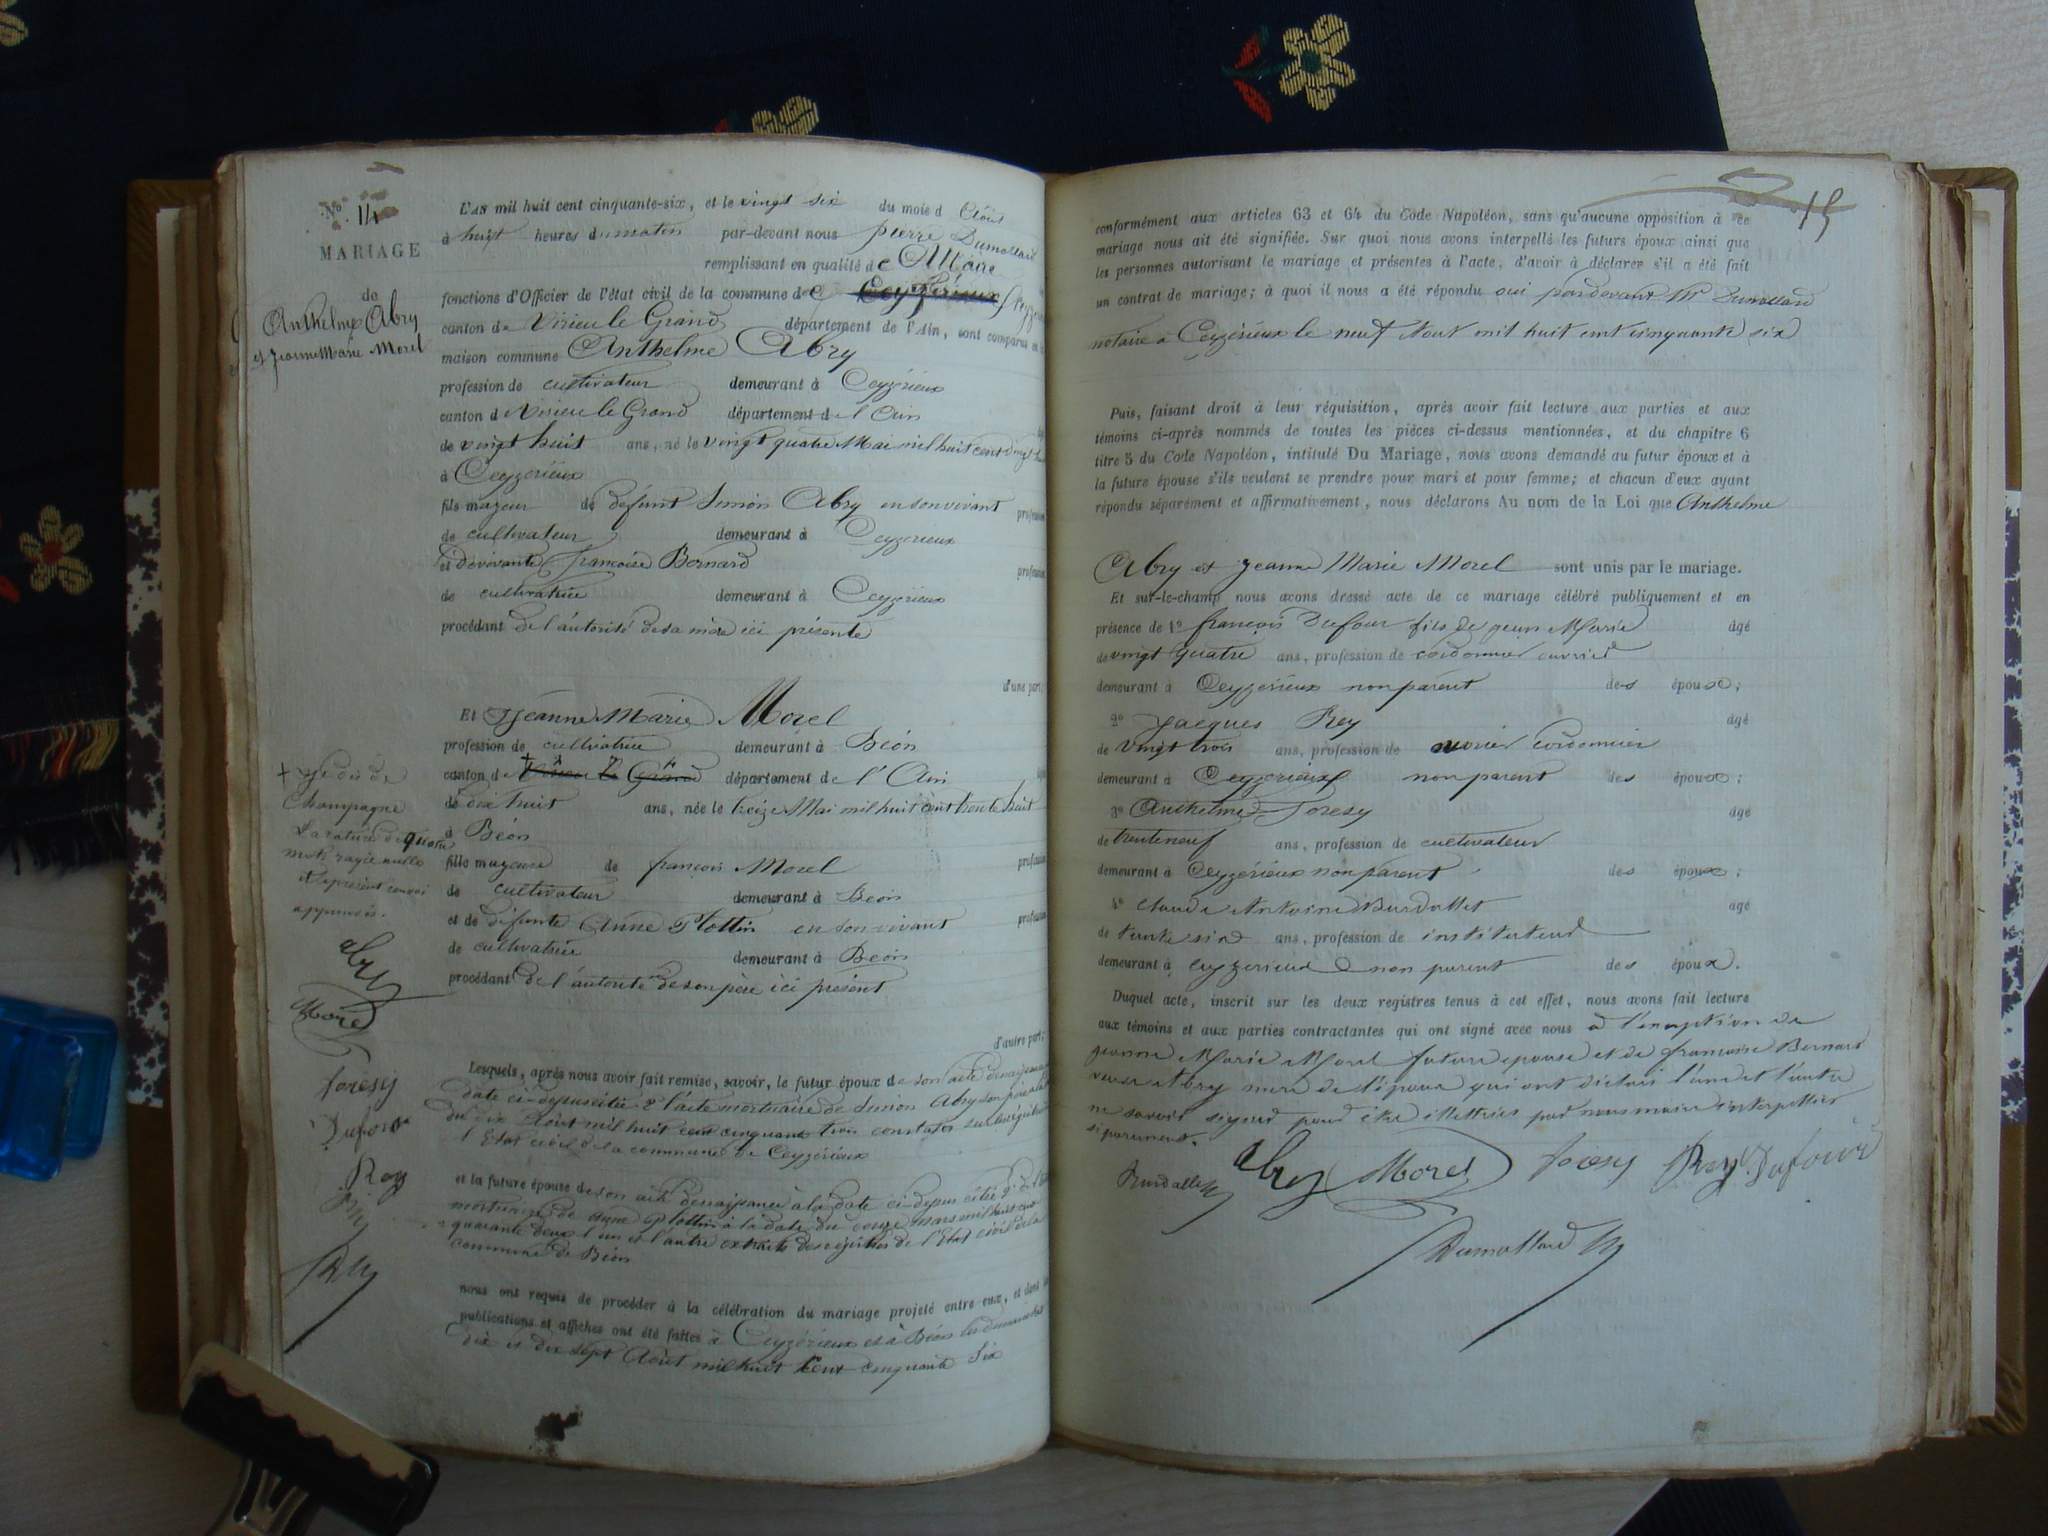 No 14
MARIAGE
de
Anthelme Abry
et Jeanne Marie Morel
L'AN mil huit cent cinquante-six, et le vingt six du mois d Août
à huit heures du matin par-devant nous pierre Dumollard
remplissant en qualité de Maire
fonctions d'Officier de l'état civil de la commune de Ceyzérieux
canton de Virieu le Grand département de l'Ain, sont comparus en
maison commune Anthelme Abry
profession de cultivateur demeurant à Ceyzérieux
canton de Virieu le Grand département de l'Ain
de vingt huit ans, né le vingt quatre Mai mil huit cent vingt huit
à Ceyzérieux
fils majeur de défunt Simon Abry en son vivant profession
de cultivateur demeurant à Ceyzérieux
et de vivante françoise Bernard profession
de cultivatrice demeurant à Ceyzérieux
procédant de l'autorité de sa mère ici présente
d'une part;
Et Jeanne Marie Morel
profession de cultivatrice demeurant à Béon
canton de Virieu le Grand département de l'Ain
de dix huit ans, née le treize Mai mil huit cent trente huit
à Béon
fille majeure de françois Morel profession
de cultivateur demeurant à Béon
et de défunte Anne Plottin en son vivant profession
de cultivatrice demeurant à Béon
procédant de l'autorité de son père ici présent
d'autre part;
+ je dis de
Champagne
La rature de quatre
mots rayée nulle
et le présent renvoi
approuvés.
abry
Morel
foresy
Dufour
Rey
Lesquels, après nous avoir fait remise, savoir, le futur époux de son acte de naissance
date ci-dessus citée 2° l'acte mortuaire de Simon Abry son père à la
du dix Août mil huit cent cinquante trois constatés sur les registres
l'Etat civil de la commune de Ceyzérieux
et la future épouse de son acte de naissance à la date ci-dessus citée 2° de l'acte
mortuaire de Anne Plottin à la date du onze Mars mil huit cent
quarante deux l'un et l'autre extraits des registres de l'Etat civil de la
commune de Béon
nous ont requis de procéder à la célébration du mariage projeté entre eux, et dont les
publications et affiches ont été faites à Ceyzérieux et à Béon les dimanches
dix et dix sept Août mil huit cent cinquante six
15
conformément aux articles 63 et 64 du Code Napoléon, sans qu'aucune opposition à ce
mariage nous ait été signifiée. Sur quoi nous avons interpellé les futurs époux ainsi que
les personnes autorisant le mariage et présentes à l'acte, d'avoir à déclarer s'il a été fait
un contrat de mariage; à quoi il nous a été répondu oui pardevant Me Dumollard
notaire à Ceyzérieux le neuf Aout mil huit cent cinquante six
Puis, faisant droit à leur réquisition, après avoir fait lecture aux parties et aux
témoins ci-après nommés de toutes les pièces ci-dessus mentionnées, et du chapitre 6
titre 5 du Code Napoléon, intitulé Du Mariage, nous avons demandé au futur époux et à
la future épouse s'ils veulent se prendre pour mari et pour femme; et chacun d'eux ayant
répondu séparément et affirmativement, nous déclarons Au nom de la Loi que Anthelme
Abry et Jeanne Marie Morel sont unis par le mariage.
Et sur-le-champ nous avons dressé acte de ce mariage célébré publiquement et en
présence de 1° françois Dufour fils de jean Marie âgé
de vingt quatre ans, profession de cordonnier ouvrier
demeurant à Ceyzérieux non parent des époux;
2° Jacques Rey âgé
de vingt trois ans, profession de ouvrier cordonnier
demeurant à Ceyzérieux non parent des époux;
3° Anthelme Foresy âgé
de trente neuf ans, profession de cultivateur
demeurant à Ceyzérieux non parent des époux;
4° claude Antoine Burdallet âgé
de trente six ans, profession de instituteur
demeurant à ceyzerieux non parent des époux.
Duquel acte, inscrit sur les deux registres tenus à cet effet, nous avons fait lecture
aux témoins et aux parties contractantes qui ont signé avec nous à l'exception de
jeanne Marie Morel future epouse et de françoise Bernard
veuve Abry mère de l'époux qui ont déclaré l'une et l'autre
ne savoir signer pour être illettrées par nous maire interpellées
séparement.
Burdallet abry Morel foresy Rey Dufour
Dumollard